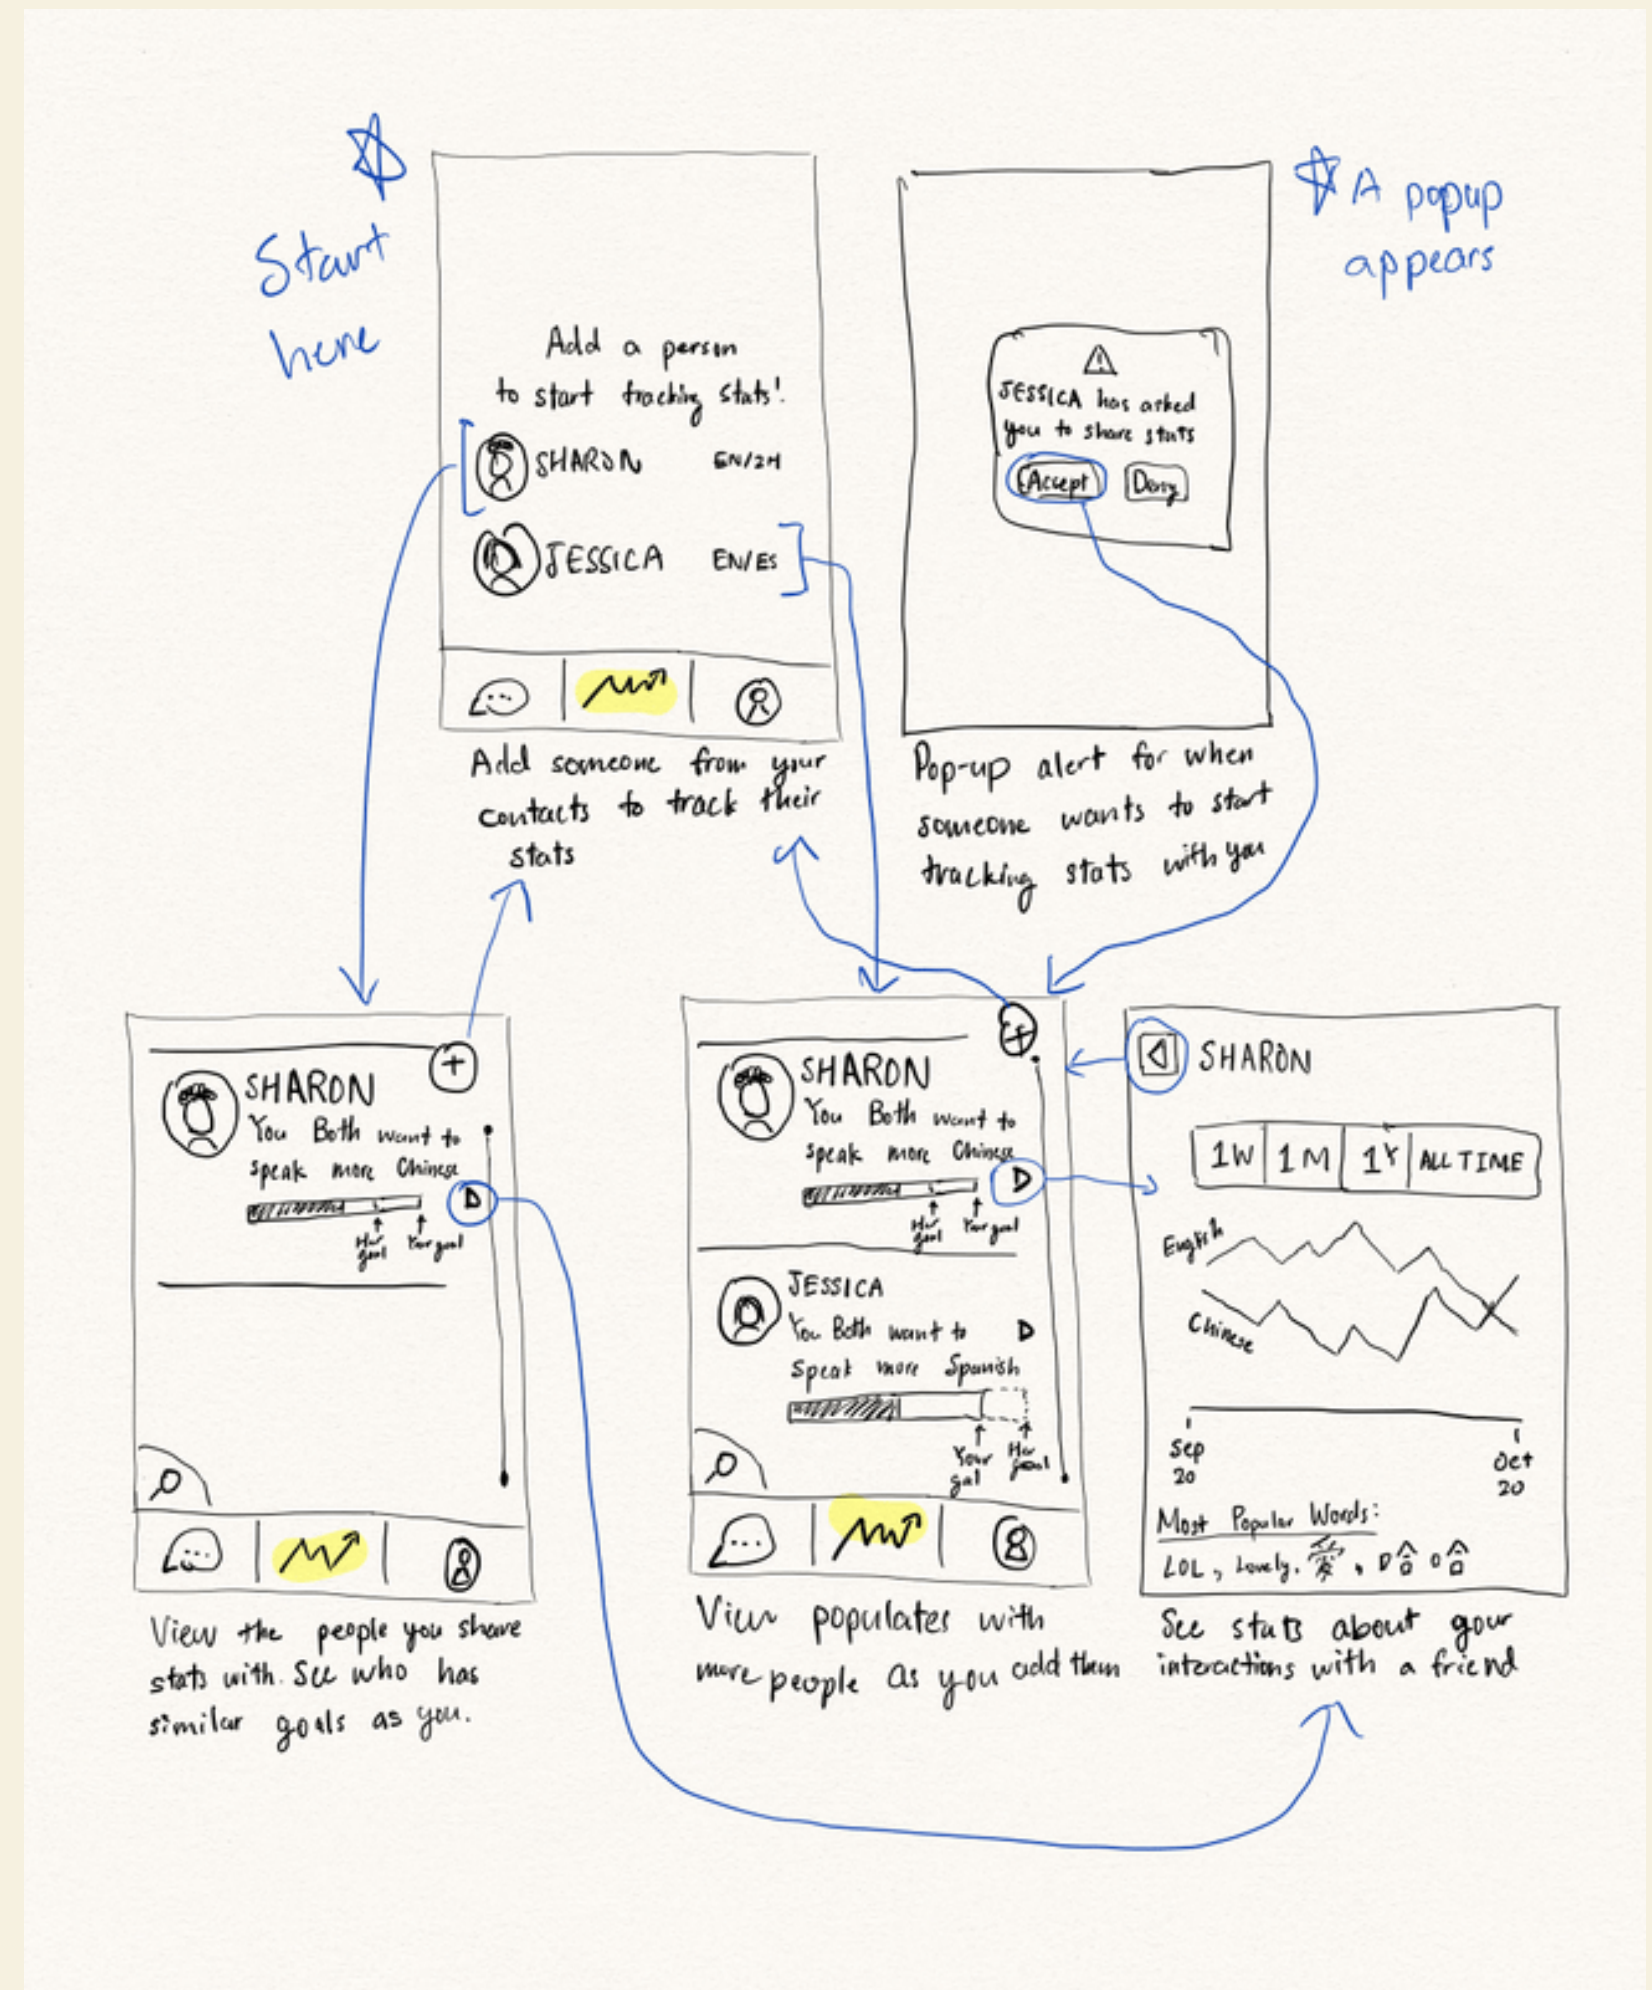 Start
here
Add a person
to start tracking stats!
SHARON EN/ZH
JESSICA EN/ES
Add someone from your
contacts to track their
stats
A popup
appears
JESSICA has asked
you to share stats
Accept Deny
Pop-up alert for when
someone wants to start
tracking stats with you
SHARON
You Both want to
speak more Chinese
Her
goal
Your goal
View the people you share
stats with. See who has
similar goals as you.
SHARON
You Both want to
speak more Chinese
Her
goal
Your goal
JESSICA
You Both want to
Speak more Spanish
Your
goal
Her
goal
View populates with
more people as you add them
SHARON
1W 1M 1Y ALL TIME
English
Chinese
Sep
20
Oct
20
Most Popular Words:
LOL, Lovely,
See stats about your
interactions with a friend